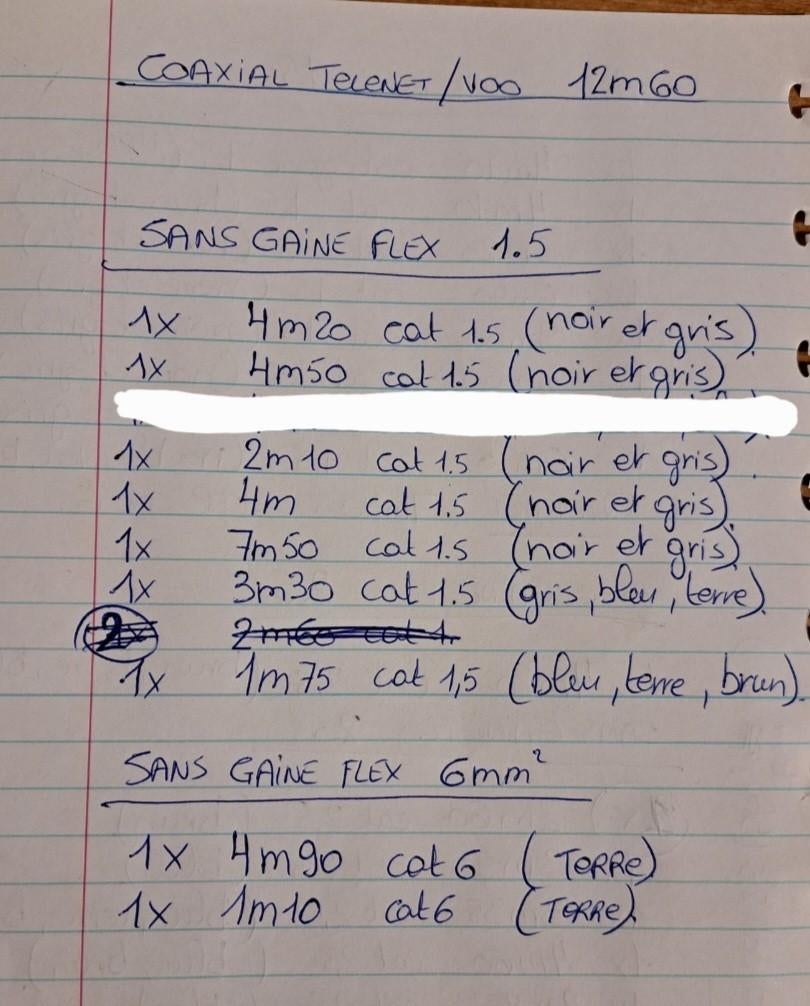 COAXIAL TELENET/VOO 12m60
SANS GAINE FLEX 1.5
1x 4m20 cat 1.5 (noir et gris)
1x 4m50 cat 1.5 (noir et gris)
1x 2m10 cat 1.5 (noir et gris)
1x 4m cat 1.5 (noir et gris)
1x 7m50 cat 1.5 (noir et gris)
1x 3m30 cat 1.5 (gris, bleu, terre)
2 2m60 cat 1.
1x 1m75 cat 1,5 (bleu, terre, brun)
SANS GAINE FLEX 6mm²
1x 4m90 cat 6 (TERRE)
1x 1m10 cat 6 (TERRE)